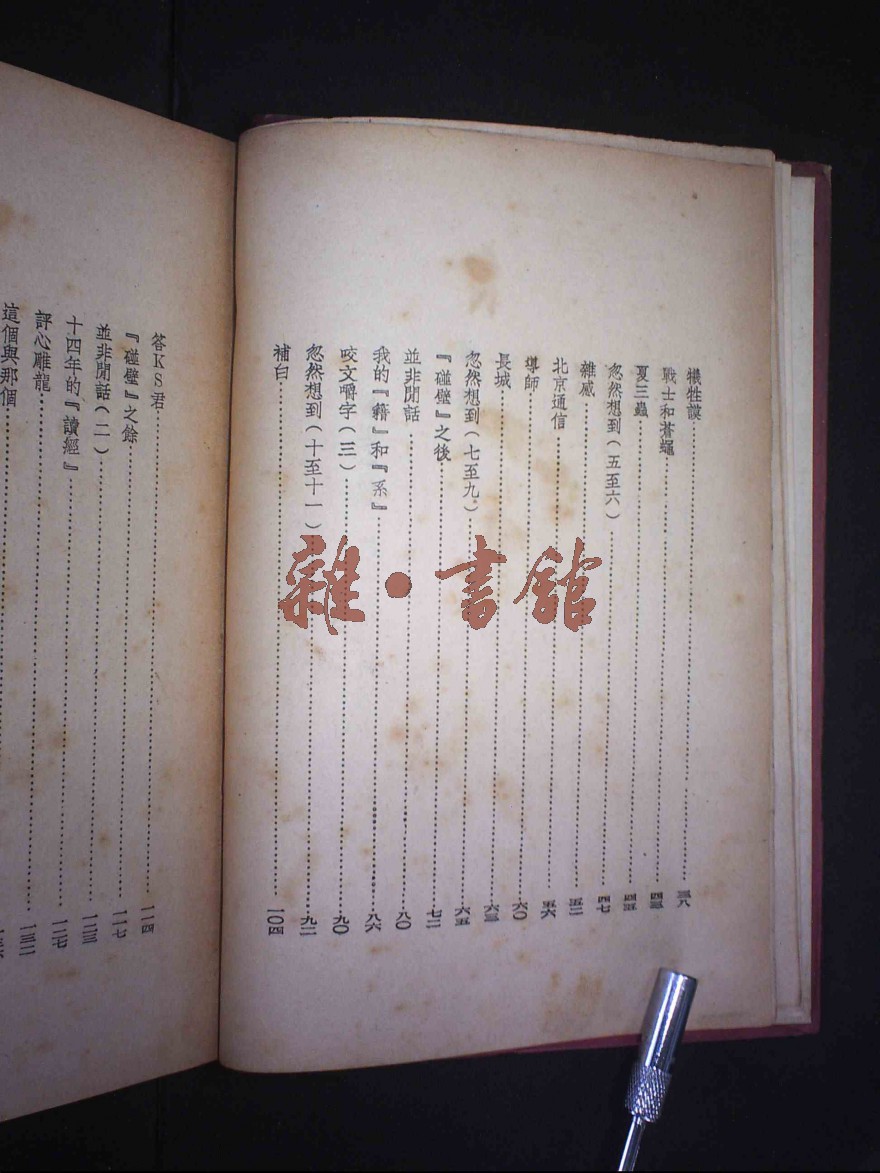 犧牲謨……三八
戰士和蒼蠅……四三
夏三蟲……四五
忽然想到(五至六)……四七
雜感……五二
北京通信……五六
導師……六〇
長城……六三
忽然想到(七至九)……六五
『碰壁』之後……七二
並非閒話……八〇
我的『籍』和『系』……八六
咬文嚼字(三)……九〇
忽然想到(十至十一)……九二
補白……一〇四
答KS君……一一四
『碰壁』之餘……一一七
並非閒話(二)……一二三
十四年的『讀經』……一二七
評心雕龍……一三二
這個與那個
雜·書館